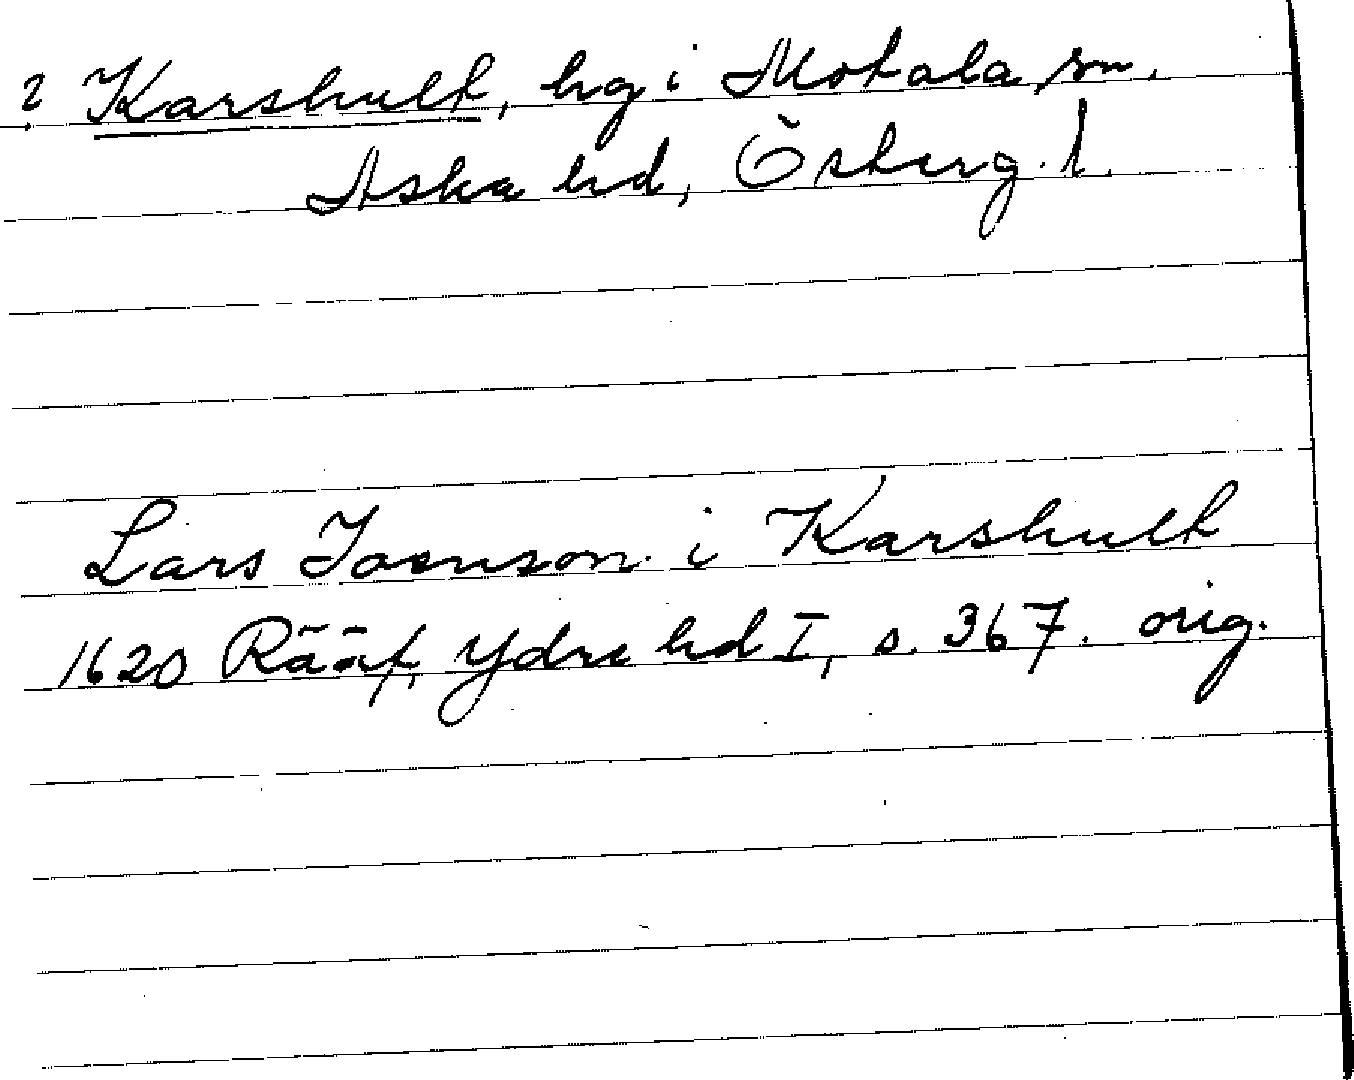 ? Karshult, hg i Motala sn,
Aska hd, Österg  l.
Lars Joenson i Karshult
1620 Rääf, Ydre hd I, s. 367. orig.